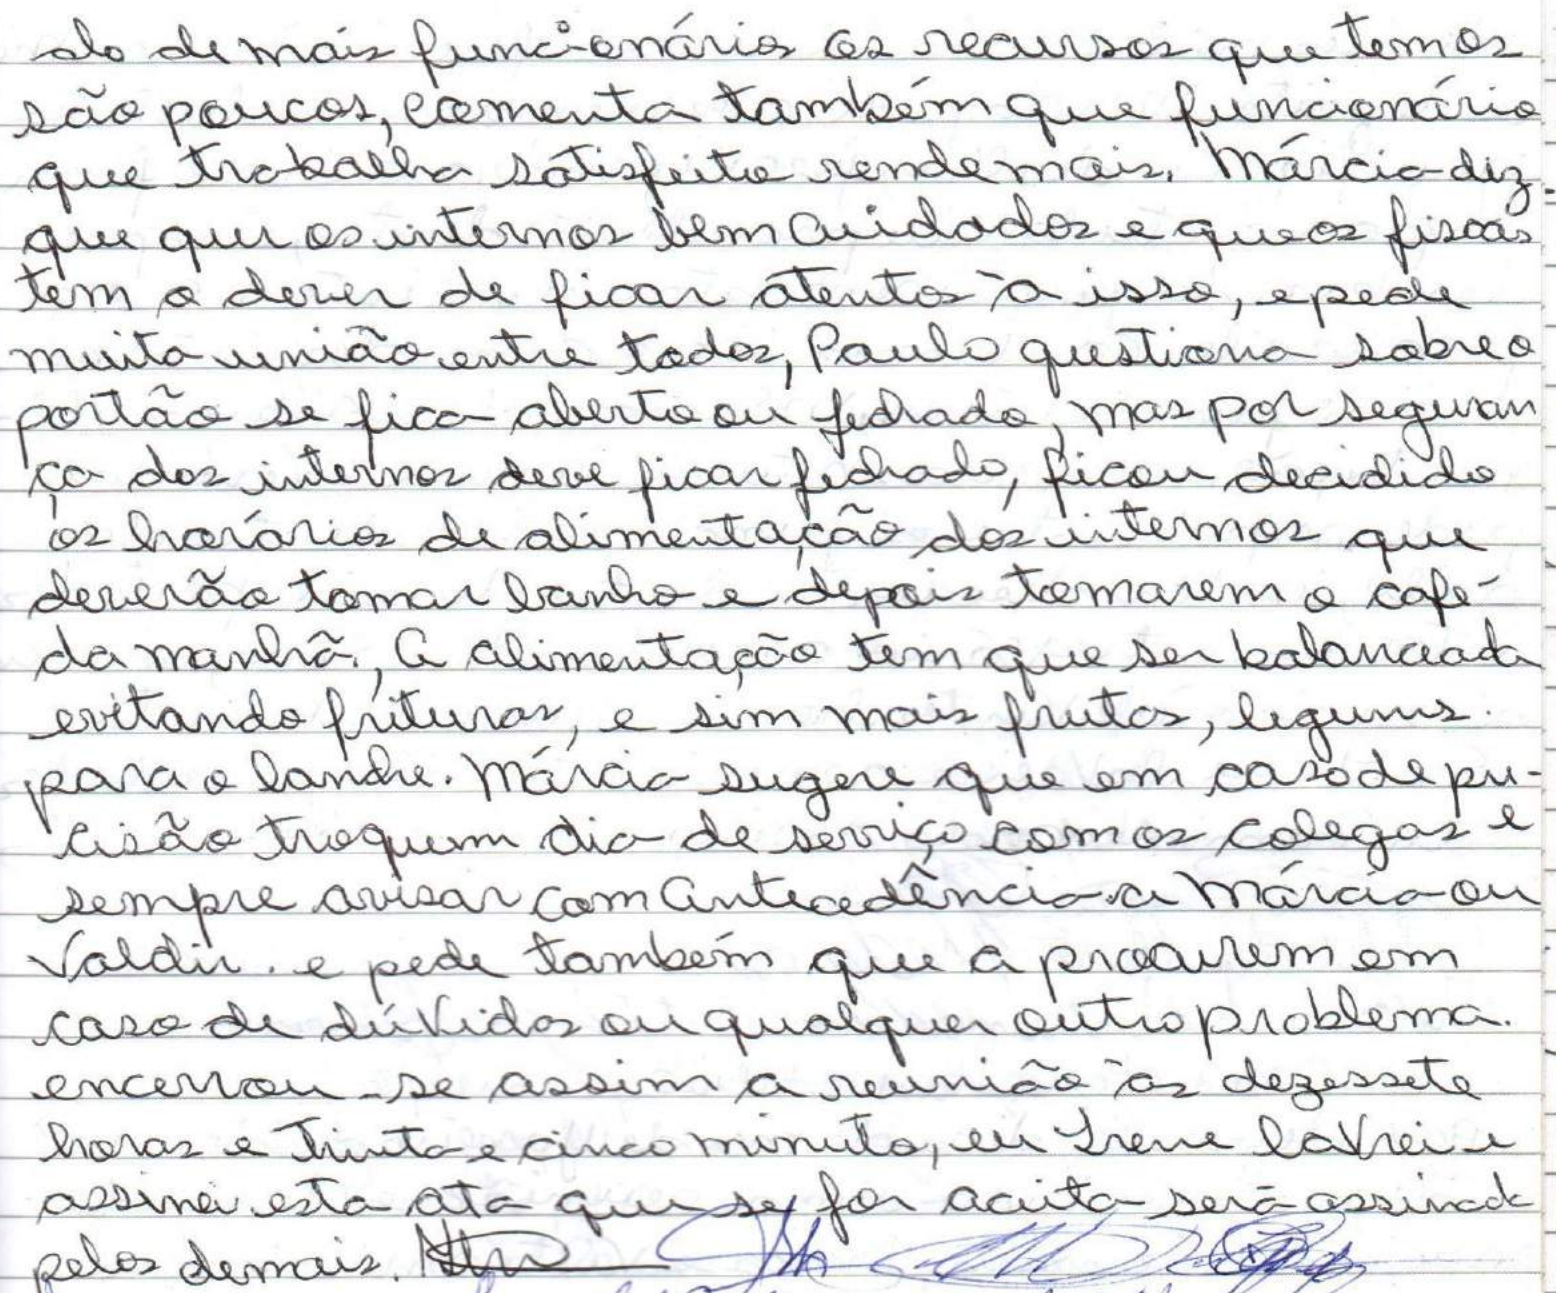 do demais funcionários os recursos que temos
são poucos, comenta também que funcionário
que trabalha satisfeito rende mais. Márcia diz
que quer os internos bem cuidados e que os fiscais
tem o dever de ficar atentos à isso, e pede
muita união entre todos, Paulo questiona sobre o
portão se fica aberto ou fechado, mas por seguran
ça dos internos deve ficar fechado, ficou decidido
os horários de alimentação dos internos que
deverão tomar banho e depois tomarem o café
da manhã, A alimentação tem que ser balanceada
evitando frituras, e sim mais frutas, legumes.
para o lanche. Márcia sugere que em caso de pre-
cisão troquem dia de serviço com os colegas e
sempre avisar com antecedência a Márcia ou
Valdir. e pede também que a procurem em
caso de dúvidas ou qualquer outro problema.
encerrou-se assim a reunião às dezessete
horas e trinta e cinco minuto, eu Irene lavrei e
assinei esta ata que se for aceita será assinada
pelos demais.